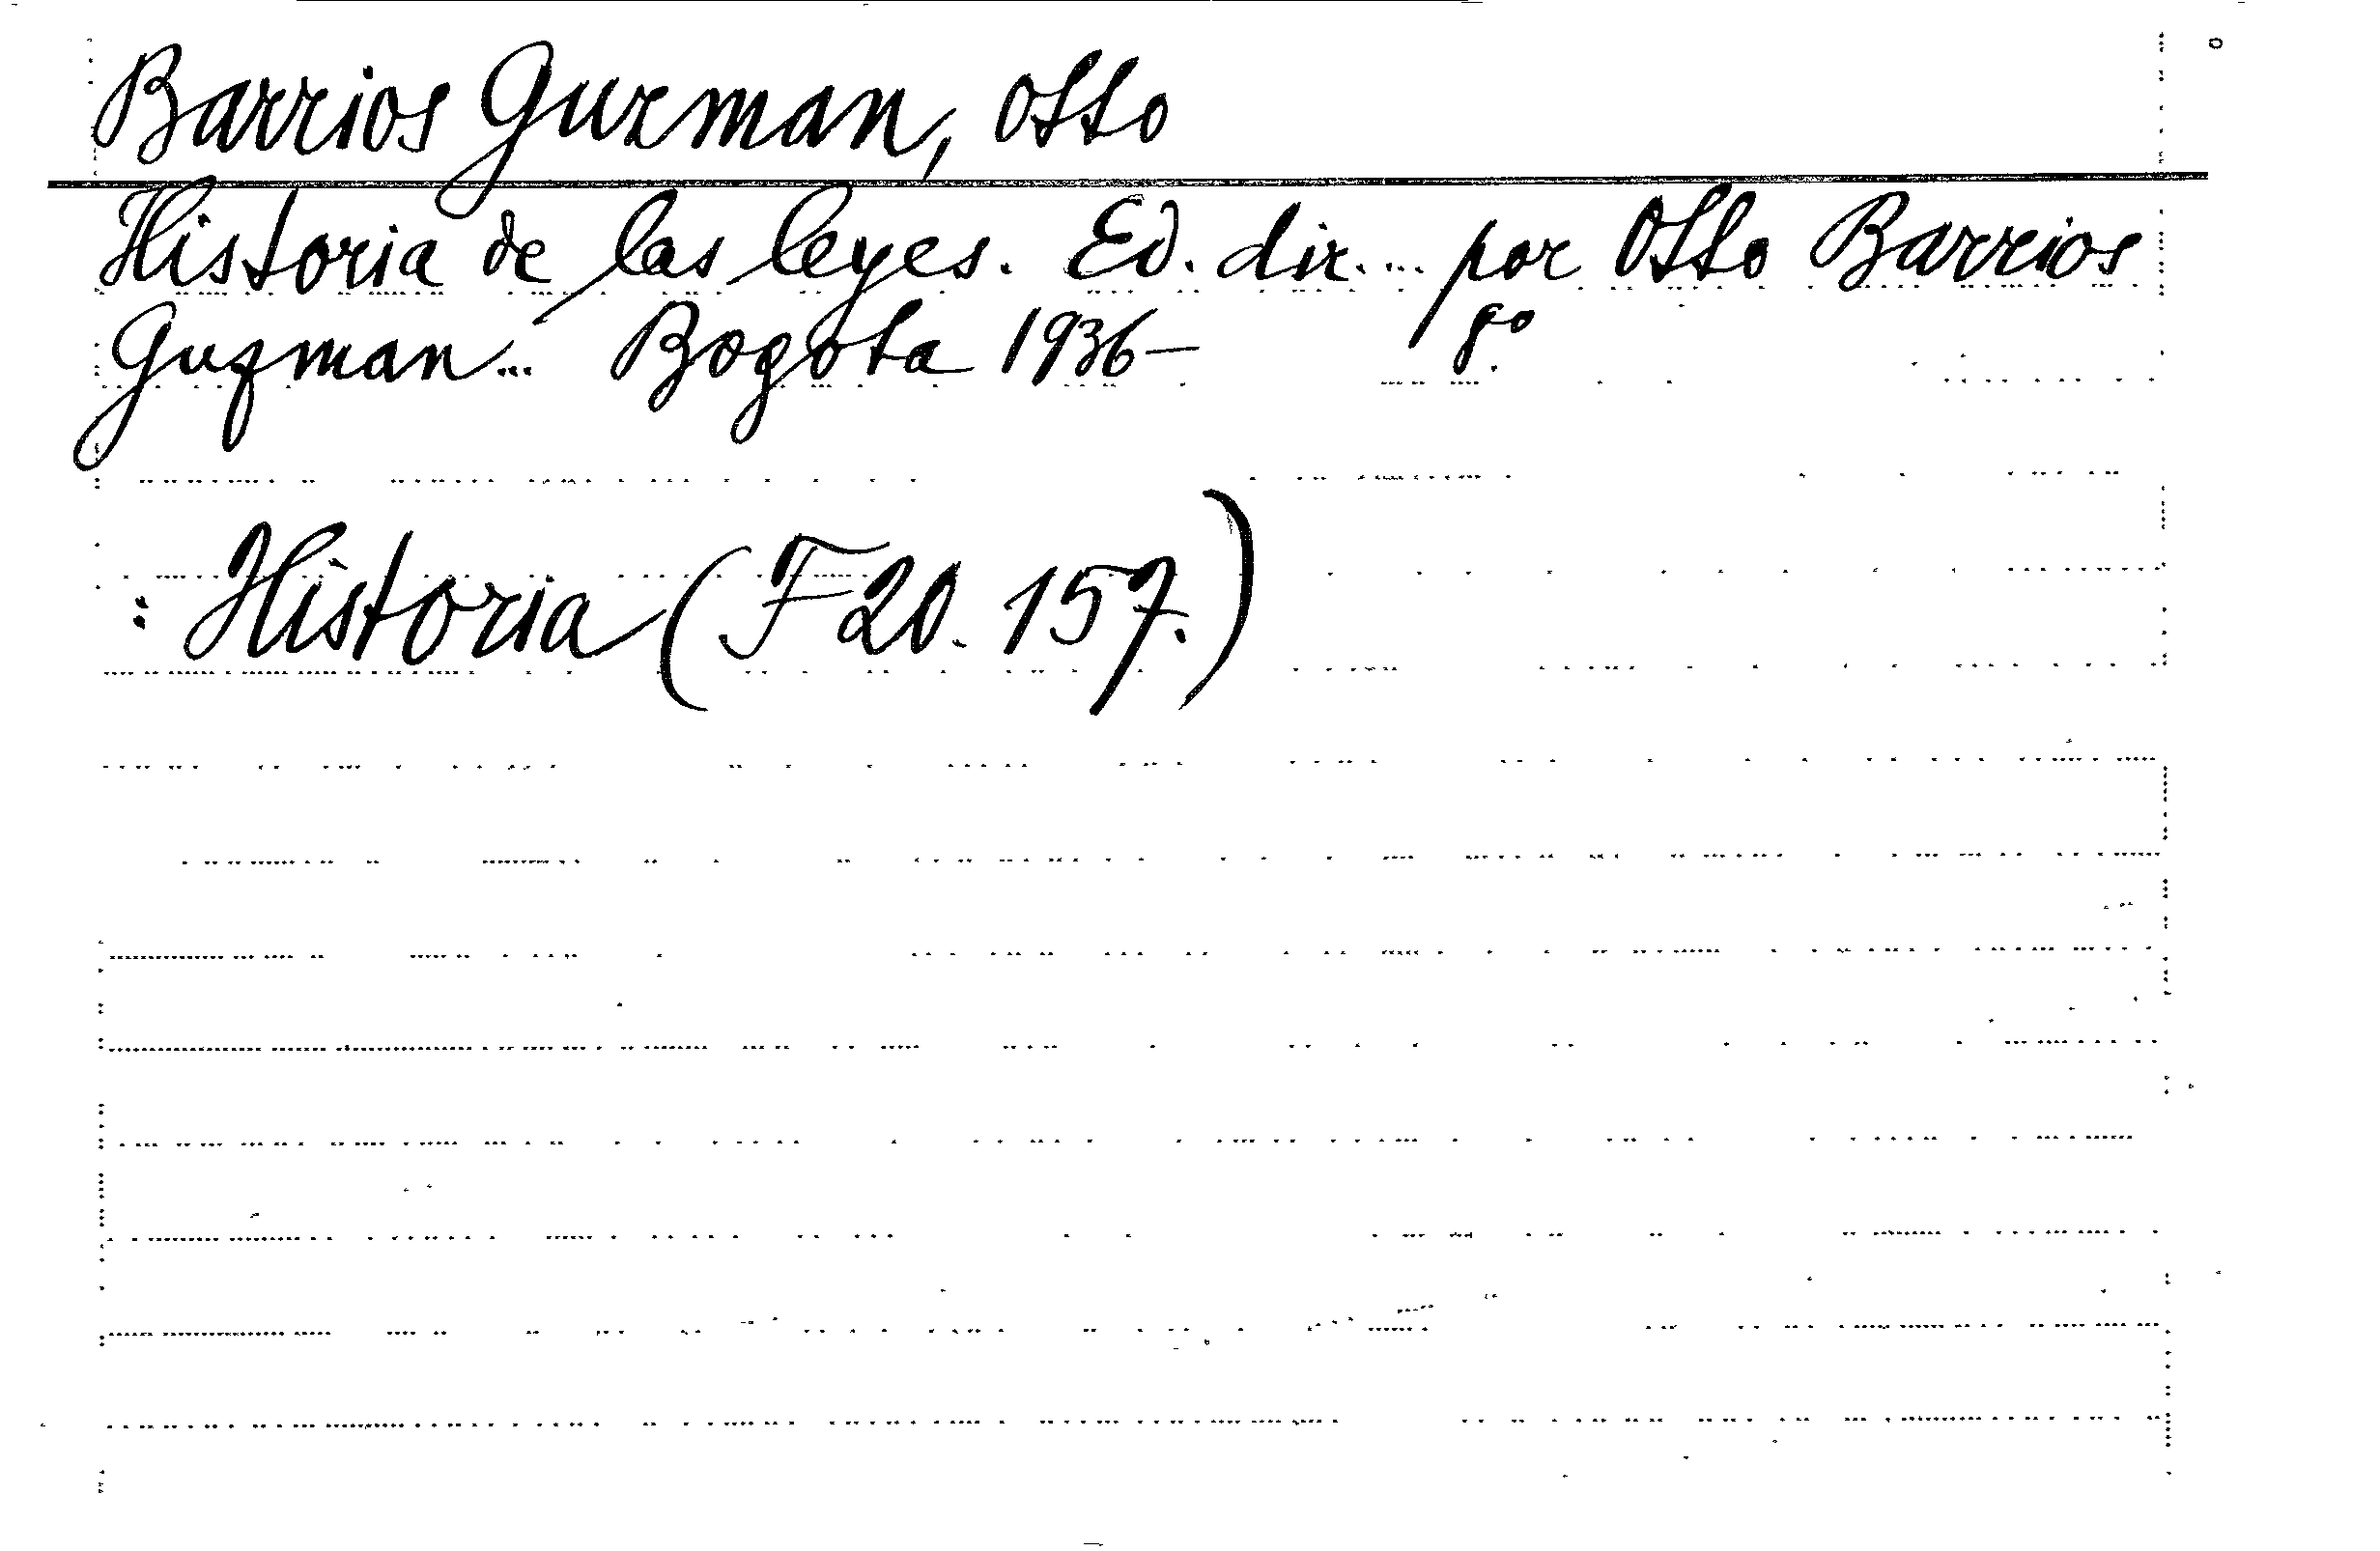 Barrios Guzman, Otto
Historia de las leyes. Ed. dir.... por Otto Barrios
Guzman... Bogota 1936– 8º.
: Historia (F 20. 157.)